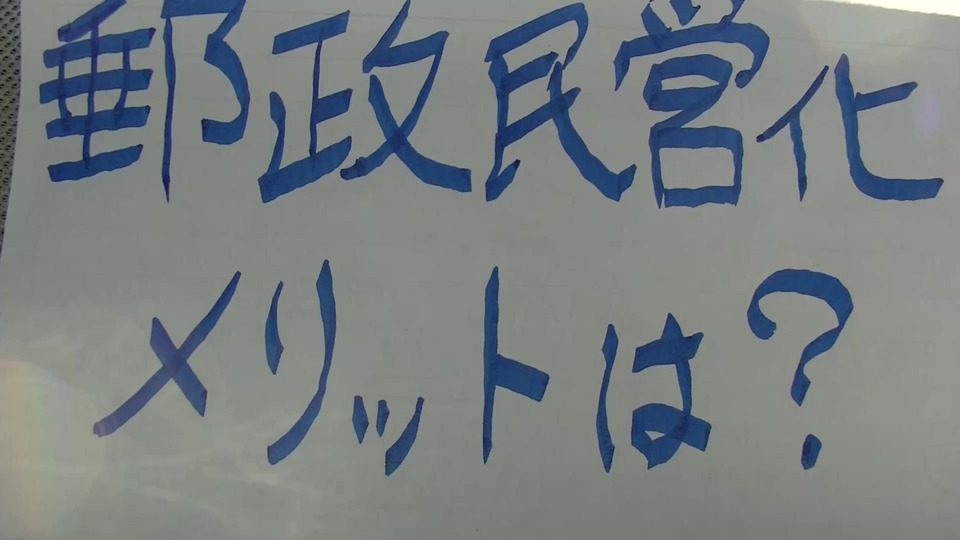 郵政民営化
メリットは?